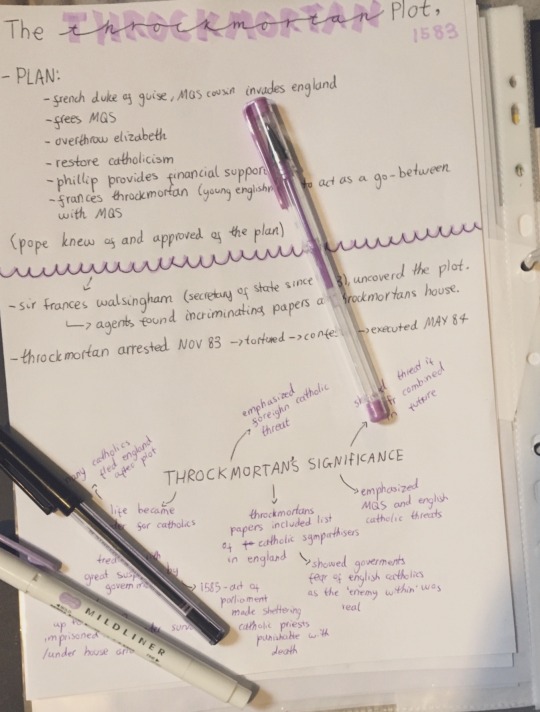 The THROCKMORTAN Plot,
1583
- PLAN:
- french duke of guise, MQS cousin invades england
- frees MQS
- overthrow elizabeth
- restore catholicism
- phillip provides financial support
- frances throckmortan (young to act as a go-between
with MQS
(pope knew of and approved of the plan)
- sir frances walsingham (secretary of state since uncoverd the plot.
→ agents found incriminating papers throckmortans house.
- throckmortan arrested NOV 83 → tortured → → executed MAY 84
emphasized
foreighn catholic
threat
threat if
combined
in future
catholics
fled england
after plot
THROCKMORTAN'S SIGNIFICANCE
life became
for catholics
throckmortans
papers included list
of catholic sympathisers
in england
emphasized
MQS and english
catholic threats
showed goverments
fear of english catholics
as the 'enemy within' was
real
great by
1585 - act of
parliament
made sheltering
catholic priests
punishable with
death
up to
imprisoned under
/under house
MILDLINER